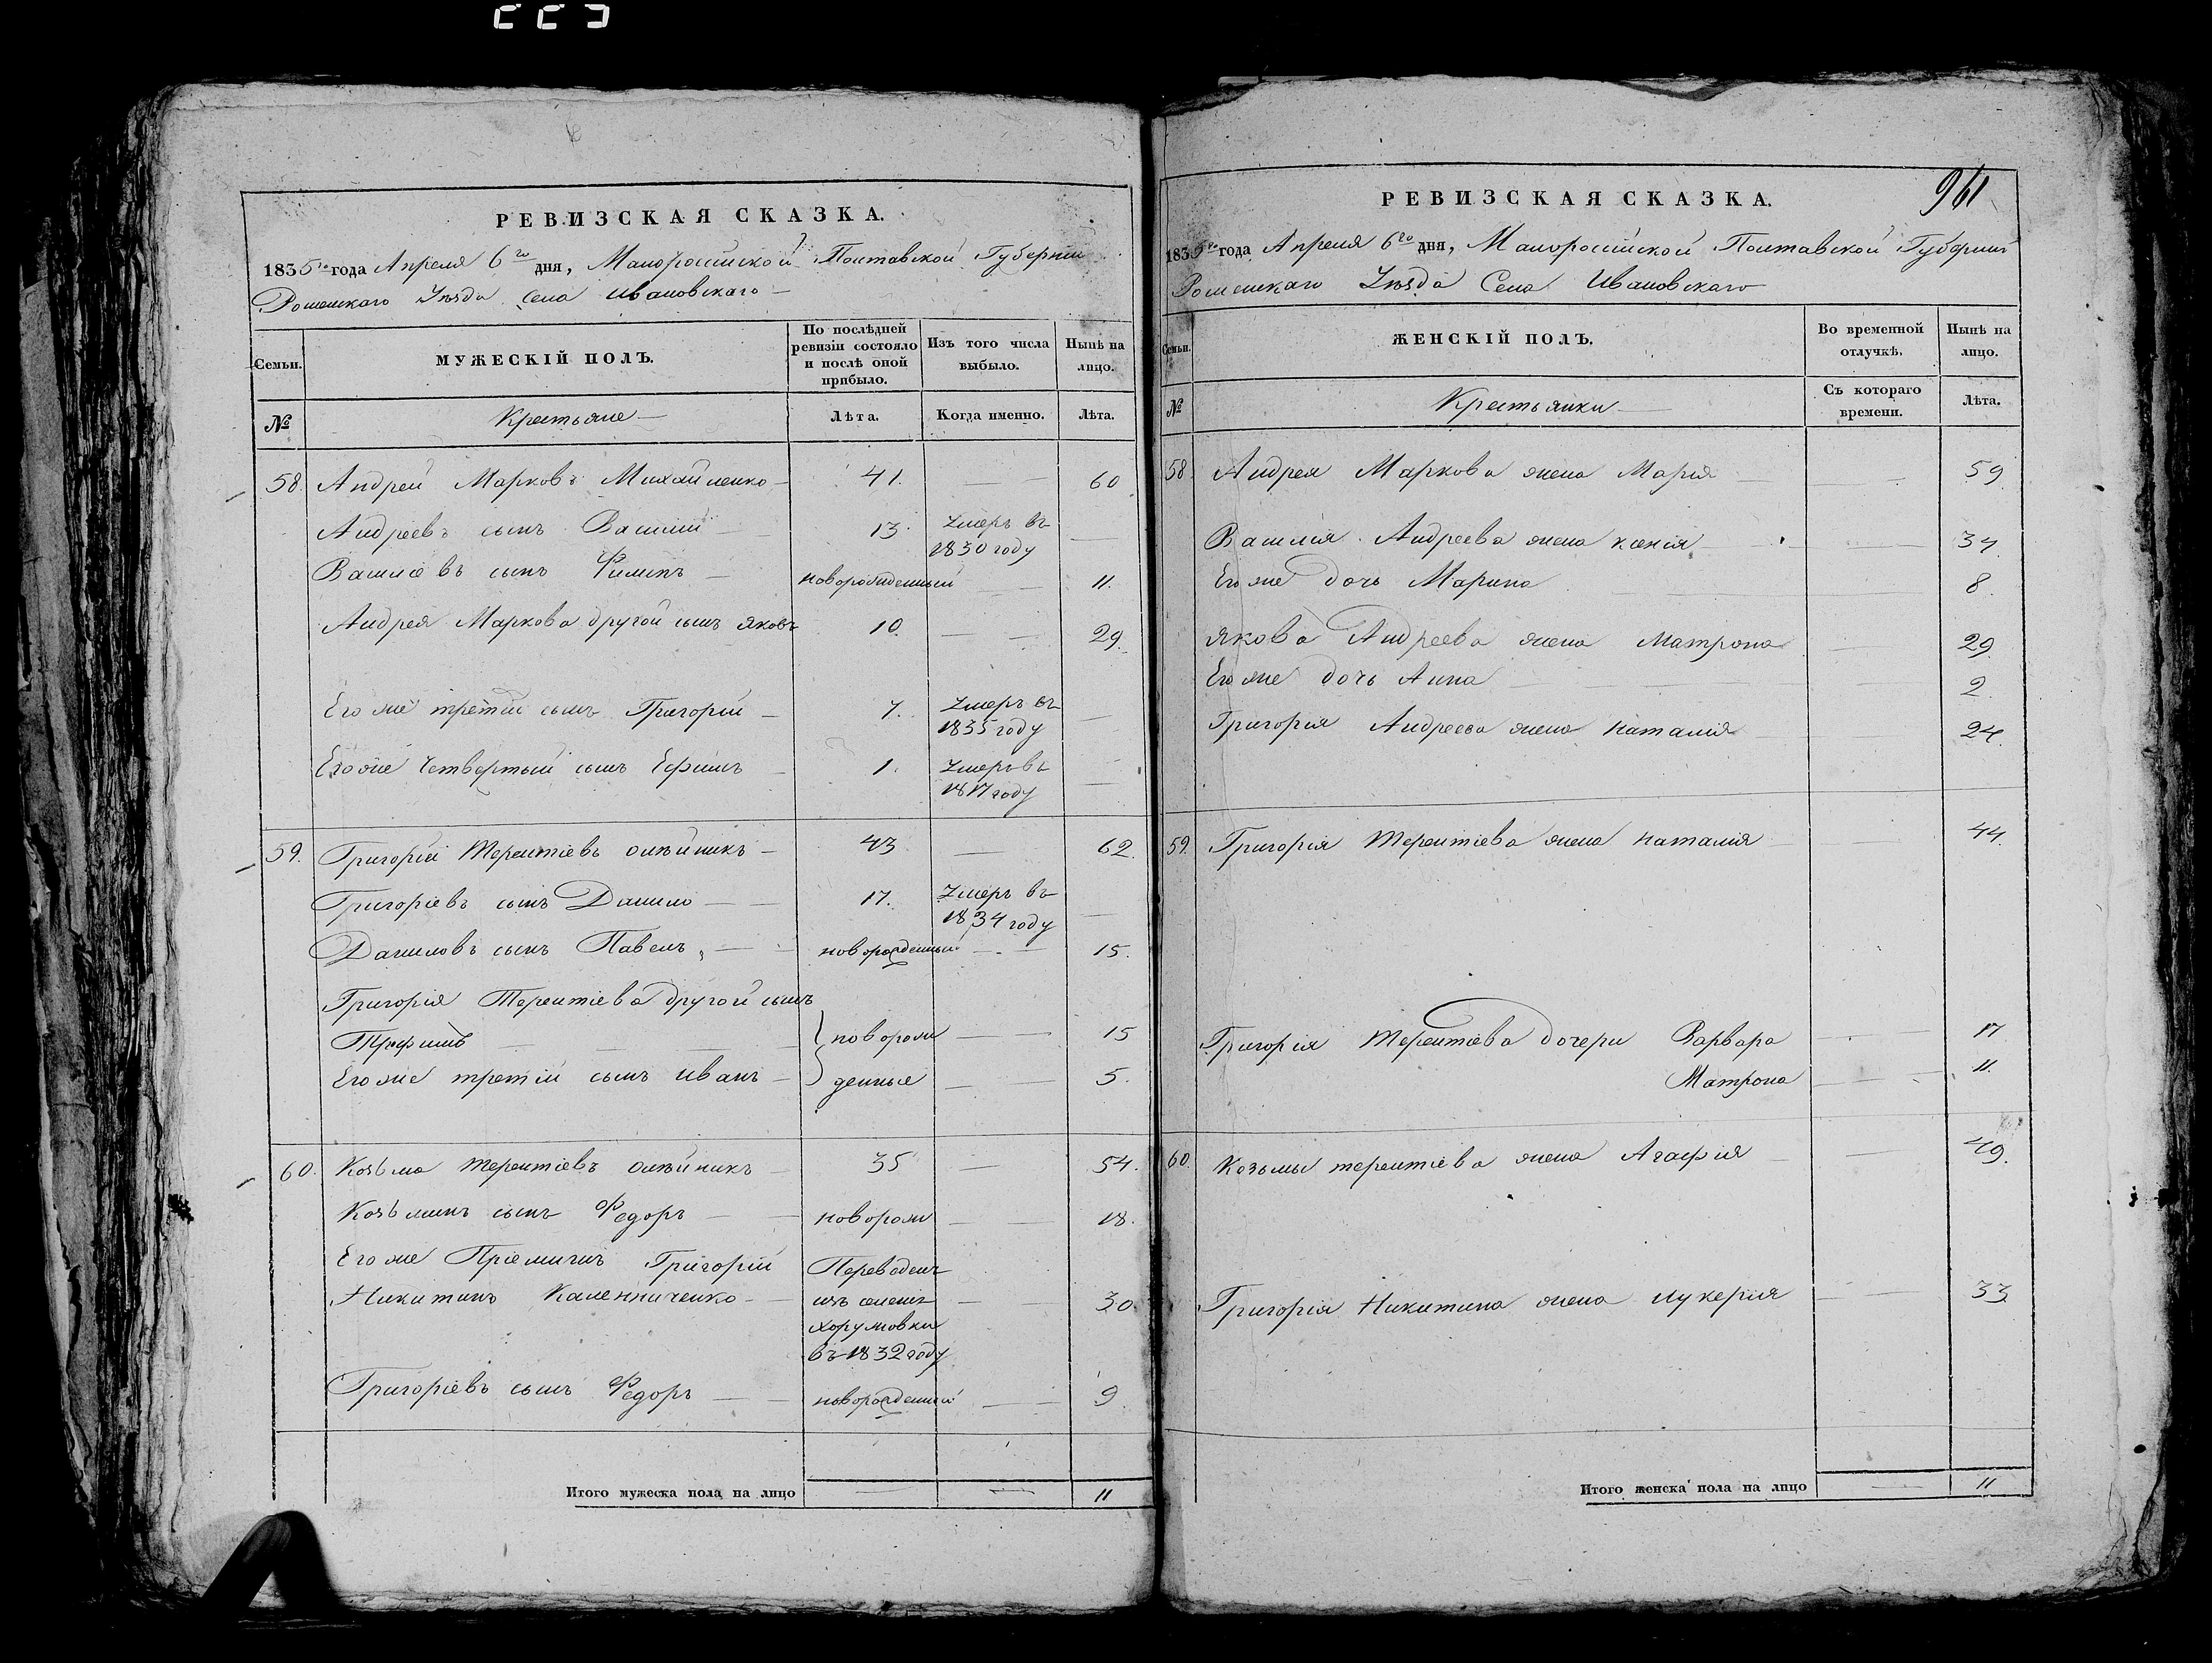 РЕВИЗСКАЯ СКАЗКА.
1835го года Апреля 6го дня, Малороссійской Полтавской Губерніи
Роменскаго Уѣзда Села Ивановскаго
Семьи.
МУЖЕСКІЙ ПОЛЪ.
По послѣдней ревизіи состояло и послѣ оной прибыло.
Изъ того числа выбыло.
Нынѣ на лицо.
№
Крестьяне
Лѣта.
Когда именно.
Лѣта.
58. Андрей Марковъ Михайленко 41. 60
Андреевъ сынъ Василій 13. Умеръ въ 1830 году
Василіевъ сынъ Филипъ новорожденный 11.
Андрея Маркова другой сынъ Яковъ 10. 29.
Его же третій сынъ Григорій 7. Умеръ въ 1835 году
Его же четвертый сынъ Ефимъ 1. Умеръ въ 1817 году
59. Григорій Терентіевъ Олѣйникъ 43 62.
Григоріевъ сынъ Данило 17. Умеръ въ 1834 году
Даниловъ сынъ Павелъ новорожденный 15.
Григорія Терентіева другой сынъ
Трофимъ новорож 15
Его же третій сынъ Иванъ денные 5.
60. Козьма Терентіевъ Олѣйникъ 35 54.
Козьминъ сынъ Федоръ новорож 18.
Его же Пріемышъ Григорій Переведенъ
Никитинъ Каленниченко изъ селенія 30.
Хорумовки
въ 1832 году
Григоріевъ сынъ Федоръ новорожденный 9.
Итого мужеска пола на лицо 11
961
РЕВИЗСКАЯ СКАЗКА.
1835го года Апреля 6го дня, Малоросійской Полтавской Губерніи
Роменскаго Уѣзда Села Ивановскаго
Семьи.
ЖЕНСКІЙ ПОЛЪ.
Во временной отлучкѣ.
Нынѣ на лицо.
№
Крестьянки
Съ котораго времени.
Лѣта.
58. Андрея Маркова жена Марія 59
Василія Андреева жена Ксенія 34
Его же дочь Марина 8.
Якова Андреева жена Матрона 29.
Его же дочь Анна 2.
Григорія Андреева жена Наталія 24.
59. Григорія Терентіева жена Наталія 44.
Григорія Терентіева дочери Варвара 17
Матрона 11.
60. Козьмы Терентіева жена Агафія 49.
Григорія Никитина жена Лукерія 33.
Итого женска пола на лицо 11